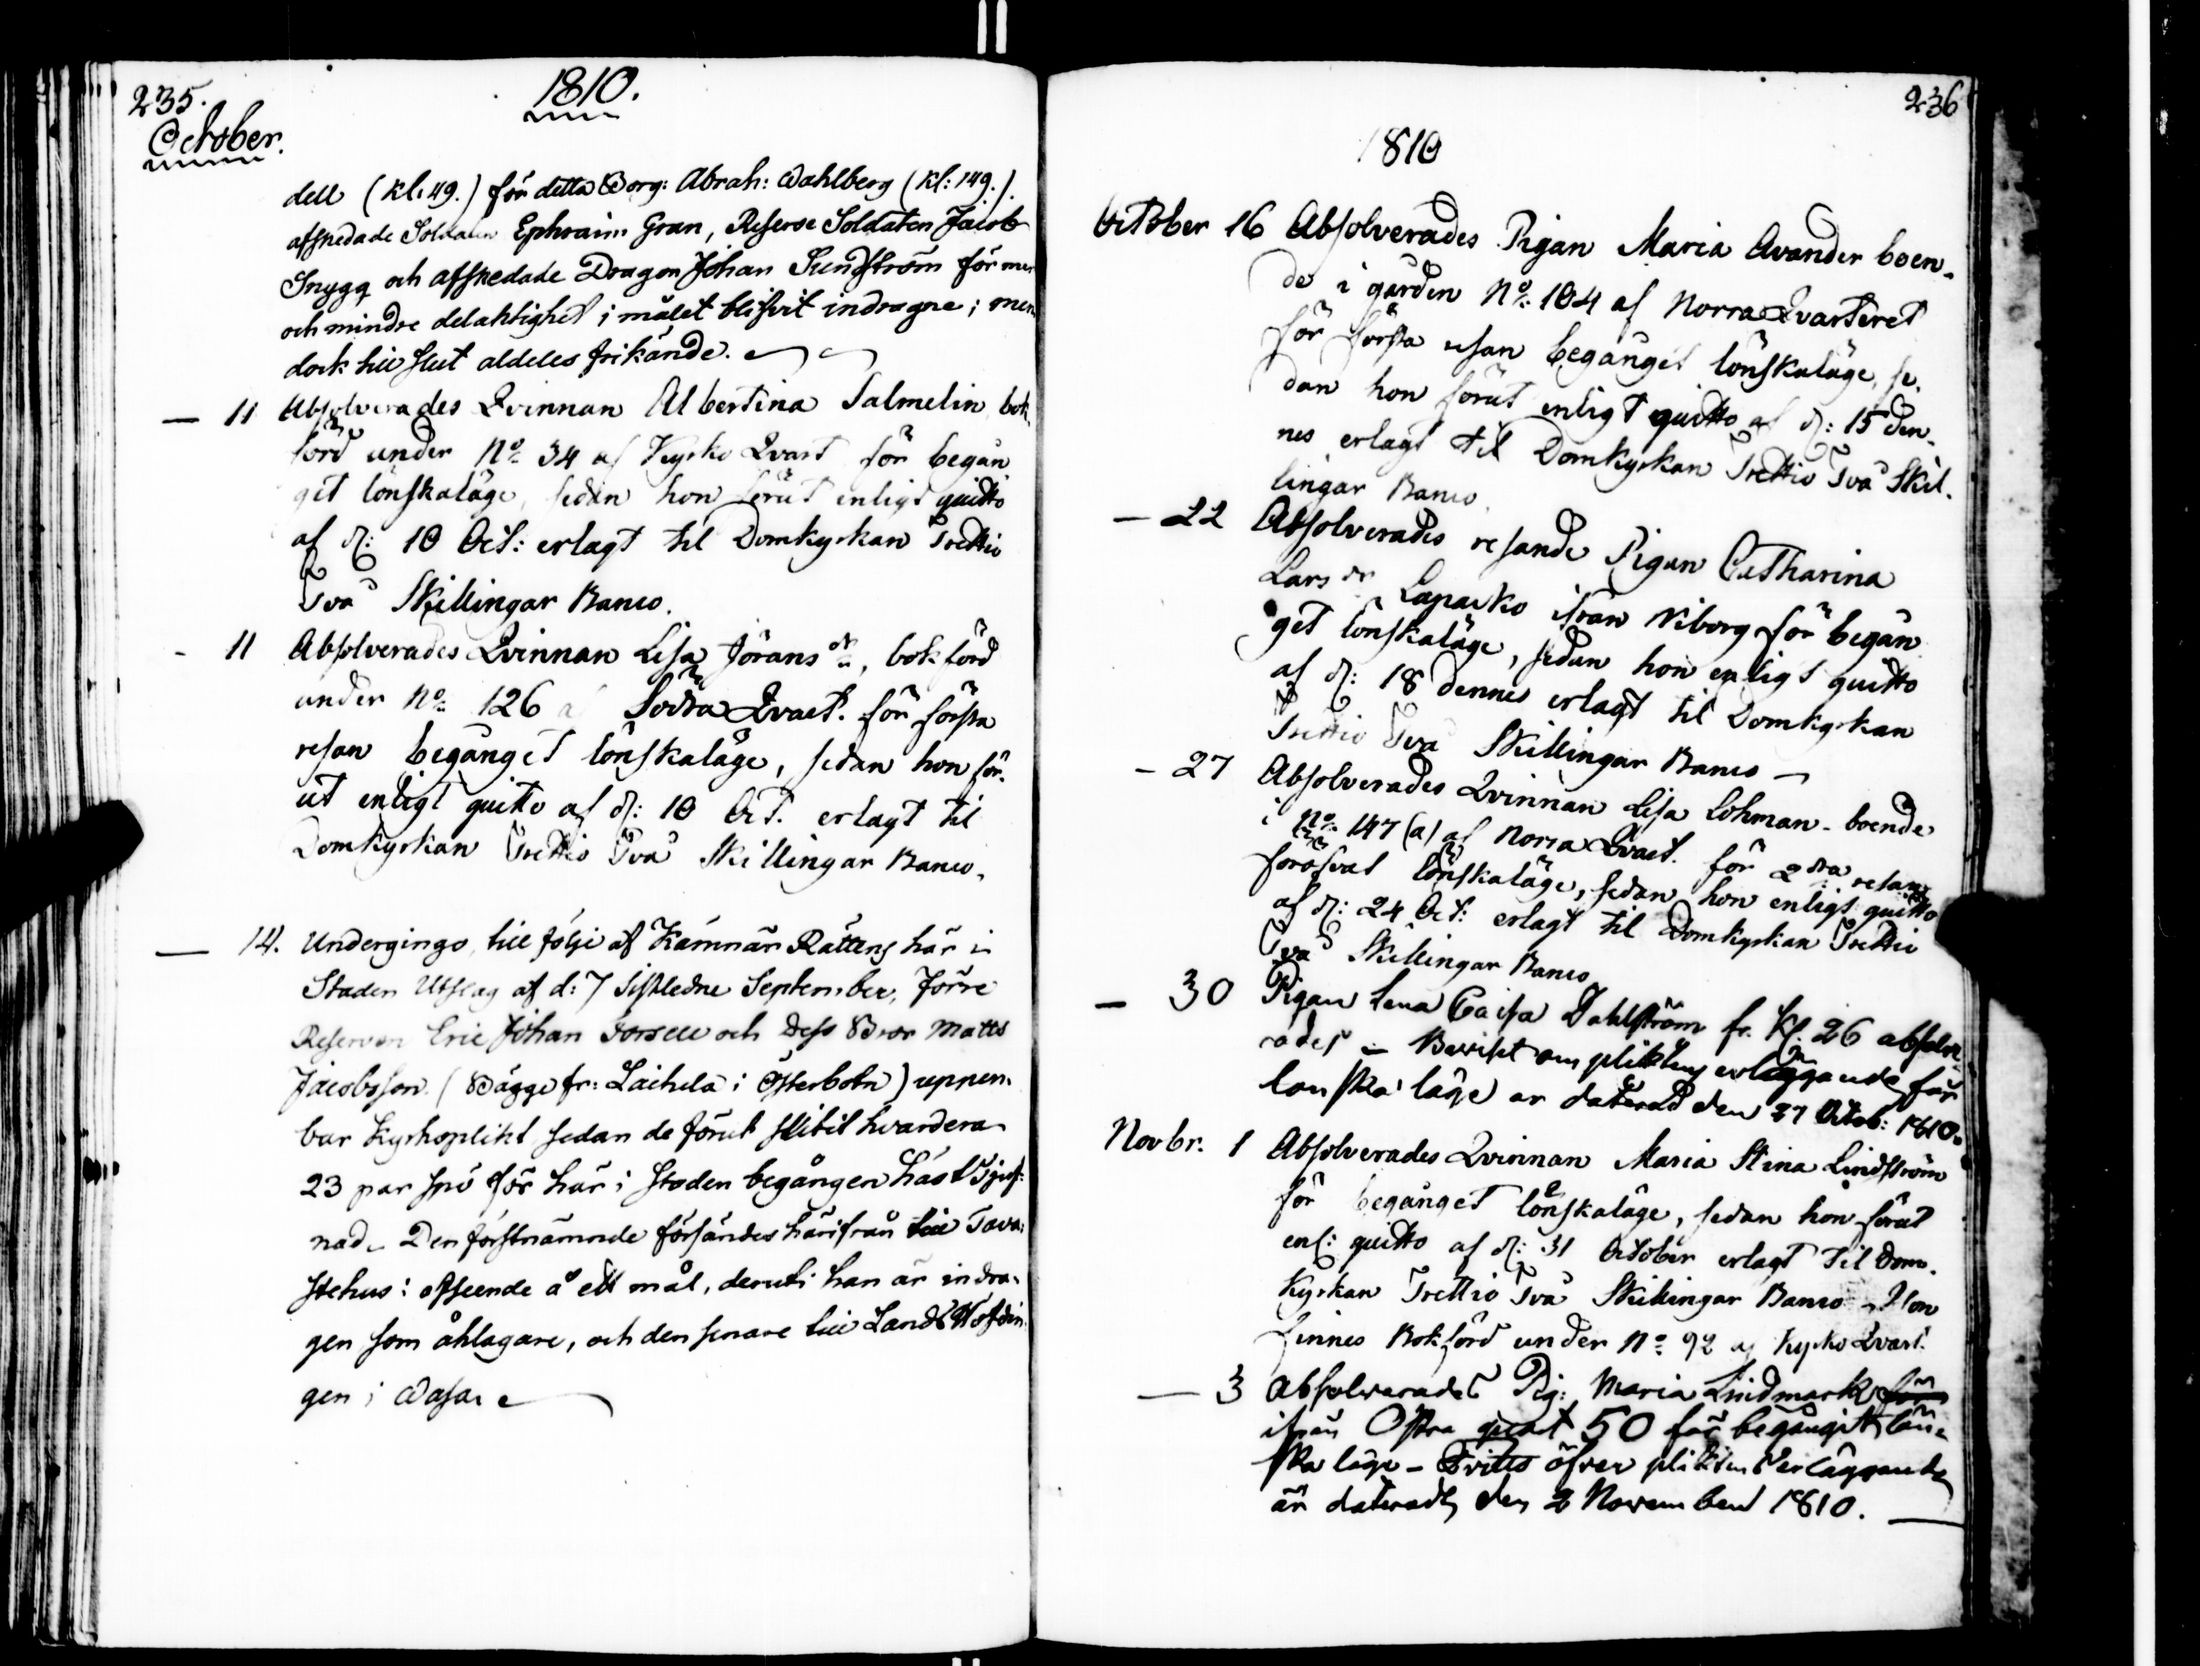 235.
1810.
October.
dell (Kl: 49.) för detta Borg: Abrah: Wahlberg (Kl: 149.).
afskedade Soldaten Ephraim Gran, Reserve Soldaten Jacob
Snygg och afskedade Dragon Johan Sundström för mer
och mindre delaktighet i målet blifvit indragne; men
dock till slut aldeles frikände.
— 11 Absolverades Qvinnan Albertina Salmelin, bok-
förd under No 34 af Kyrko Qvart för begån
git lönskaläge, sedan hon förut enligt quitto
af d: 10 Oct: erlagt til Domkyrkan Trettio
Två Skillingar Banco.
- 11 Absolverades Qvinnan Lisa Jöransdr, bokförd
under No 126 a Södra Qvart. för första
resan begånget lönskaläge, sedan hon för-
ut enligt quitto af d: 10 Oct. erlagt til
Domkyrkan Trettio Två Skillingar Banco.
— 14. Undergingo till följe af Kämnärs Rättens här i
Staden Utslag af d: 7 sistledne September, förre
Reserven Eric Johan Forsell och Dess Bror Matts
Jacobsson (Bägge fr: Laihela i Österbotn) uppen-
bar Kyrkoplikt sedan de förut slitit hvardera
23 par spö för här i Staden begången häst tjuf-
nad. Den förstnämnde försändes härifrån till Tava-
stehus i afseende å ett mål, deruti han är indra-
gen som åklagare, och den senare till Lands Höfdin-
gen i Wasa.
236
1810
October 16 Absolverades Pigan Maria Avander boen-
de i gården No: 104 af Norra Qvarteret
för första resan begånget lönskaläge, se-
dan hon förut enligt quitto af d: 15 den-
nes erlagt til Domkyrkan Trettio Två Skil-
lingar Banco.
— 22 Absolverades resande Pigan Catharina
Larsdr Lapatko ifrån Wiborg för begån
get lönskaläge, sedan hon enligt quitto
af d: 18 dennes erlagt til Domkyrkan
Trettio Två Skillingar Banco —
— 27 Absolverades Qvinnan Lisa Lohman - boende
i No: 147 (a) af Norra Qvart. för 2dra resan
föröfvat lönskaläge, sedan hon enligt quitto
af d: 24 Oct: erlagt til Domkyrkan Trettio
Två Skillingar Banco
— 30 Pigan Lena Caisa Dahlström fr. Kl. 26 absolve-
rades — Beviset om pliktens erläggande för
lönska läge är daterad den 27 Octob: 1810.
Novbr. 1 Absolverades Qvinnan Maria Stina Lindström
för begånget lönskaläge, sedan hon förut
enl: quitto af d: 31 October erlagt til Dom-
Kyrkan Trettio Två Skillingar Banco - Hon
finnes Bokförd under No 92 af Kyrko Qvart.
— 3 Absolverades Pig: Maria Lindmark
ifrån Östra qvart 50 för begångit lön-
ska läge - öfver pliktens erläggande
är daterad den 2 November 1810. —